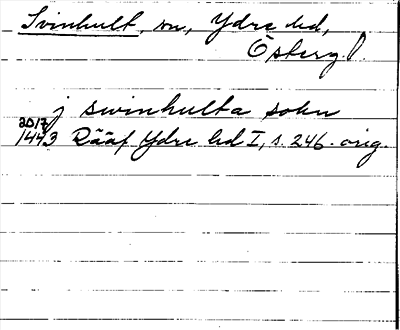 Svinhult, sn, Ydre hd,
Österg.
j swinhulta sokn
20/7
1443 Rääf Ydre hd I, s. 246. orig.